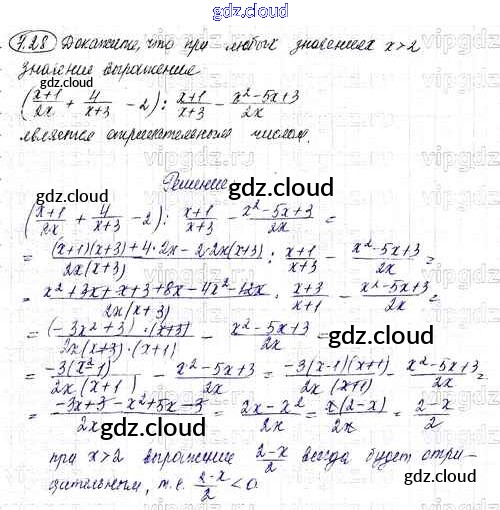 gdz.cloud
7.28 Докажите, что при любых значениях x>2
значение выражения
((x+1)/2x + 4/(x+3) - 2) : (x+1)/(x+3) - (x²-5x+3)/2x
является отрицательным числом.
gdz.cloud
Решение
gdz.cloud
((x+1)/2x + 4/(x+3) - 2) : (x+1)/(x+3) - (x²-5x+3)/2x =
= ((x+1)(x+3)+4·2x-2·2x(x+3))/2x(x+3) : (x+1)/(x+3) - (x²-5x+3)/2x =
= (x²+3x+x+3+8x-4x²-12x)/2x(x+3) · (x+3)/(x+1) - (x²-5x+3)/2x =
= ((-3x²+3)·(x+3))/(2x(x+3)·(x+1)) - (x²-5x+3)/2x =
gdz.cloud
= -3(x²-1)/2x(x+1) - (x²-5x+3)/2x = -3(x-1)(x+1)/2x(x+1) - (x²-5x+3)/2x =
= (-3x+3-x²+5x-3)/2x = (2x-x²)/2x = x(2-x)/2x = (2-x)/2
gdz.cloud
при x>2 выражение (2-x)/2 всегда будет отри-
цательным, т.е. (2-x)/2 < 0.
gdz.cloud